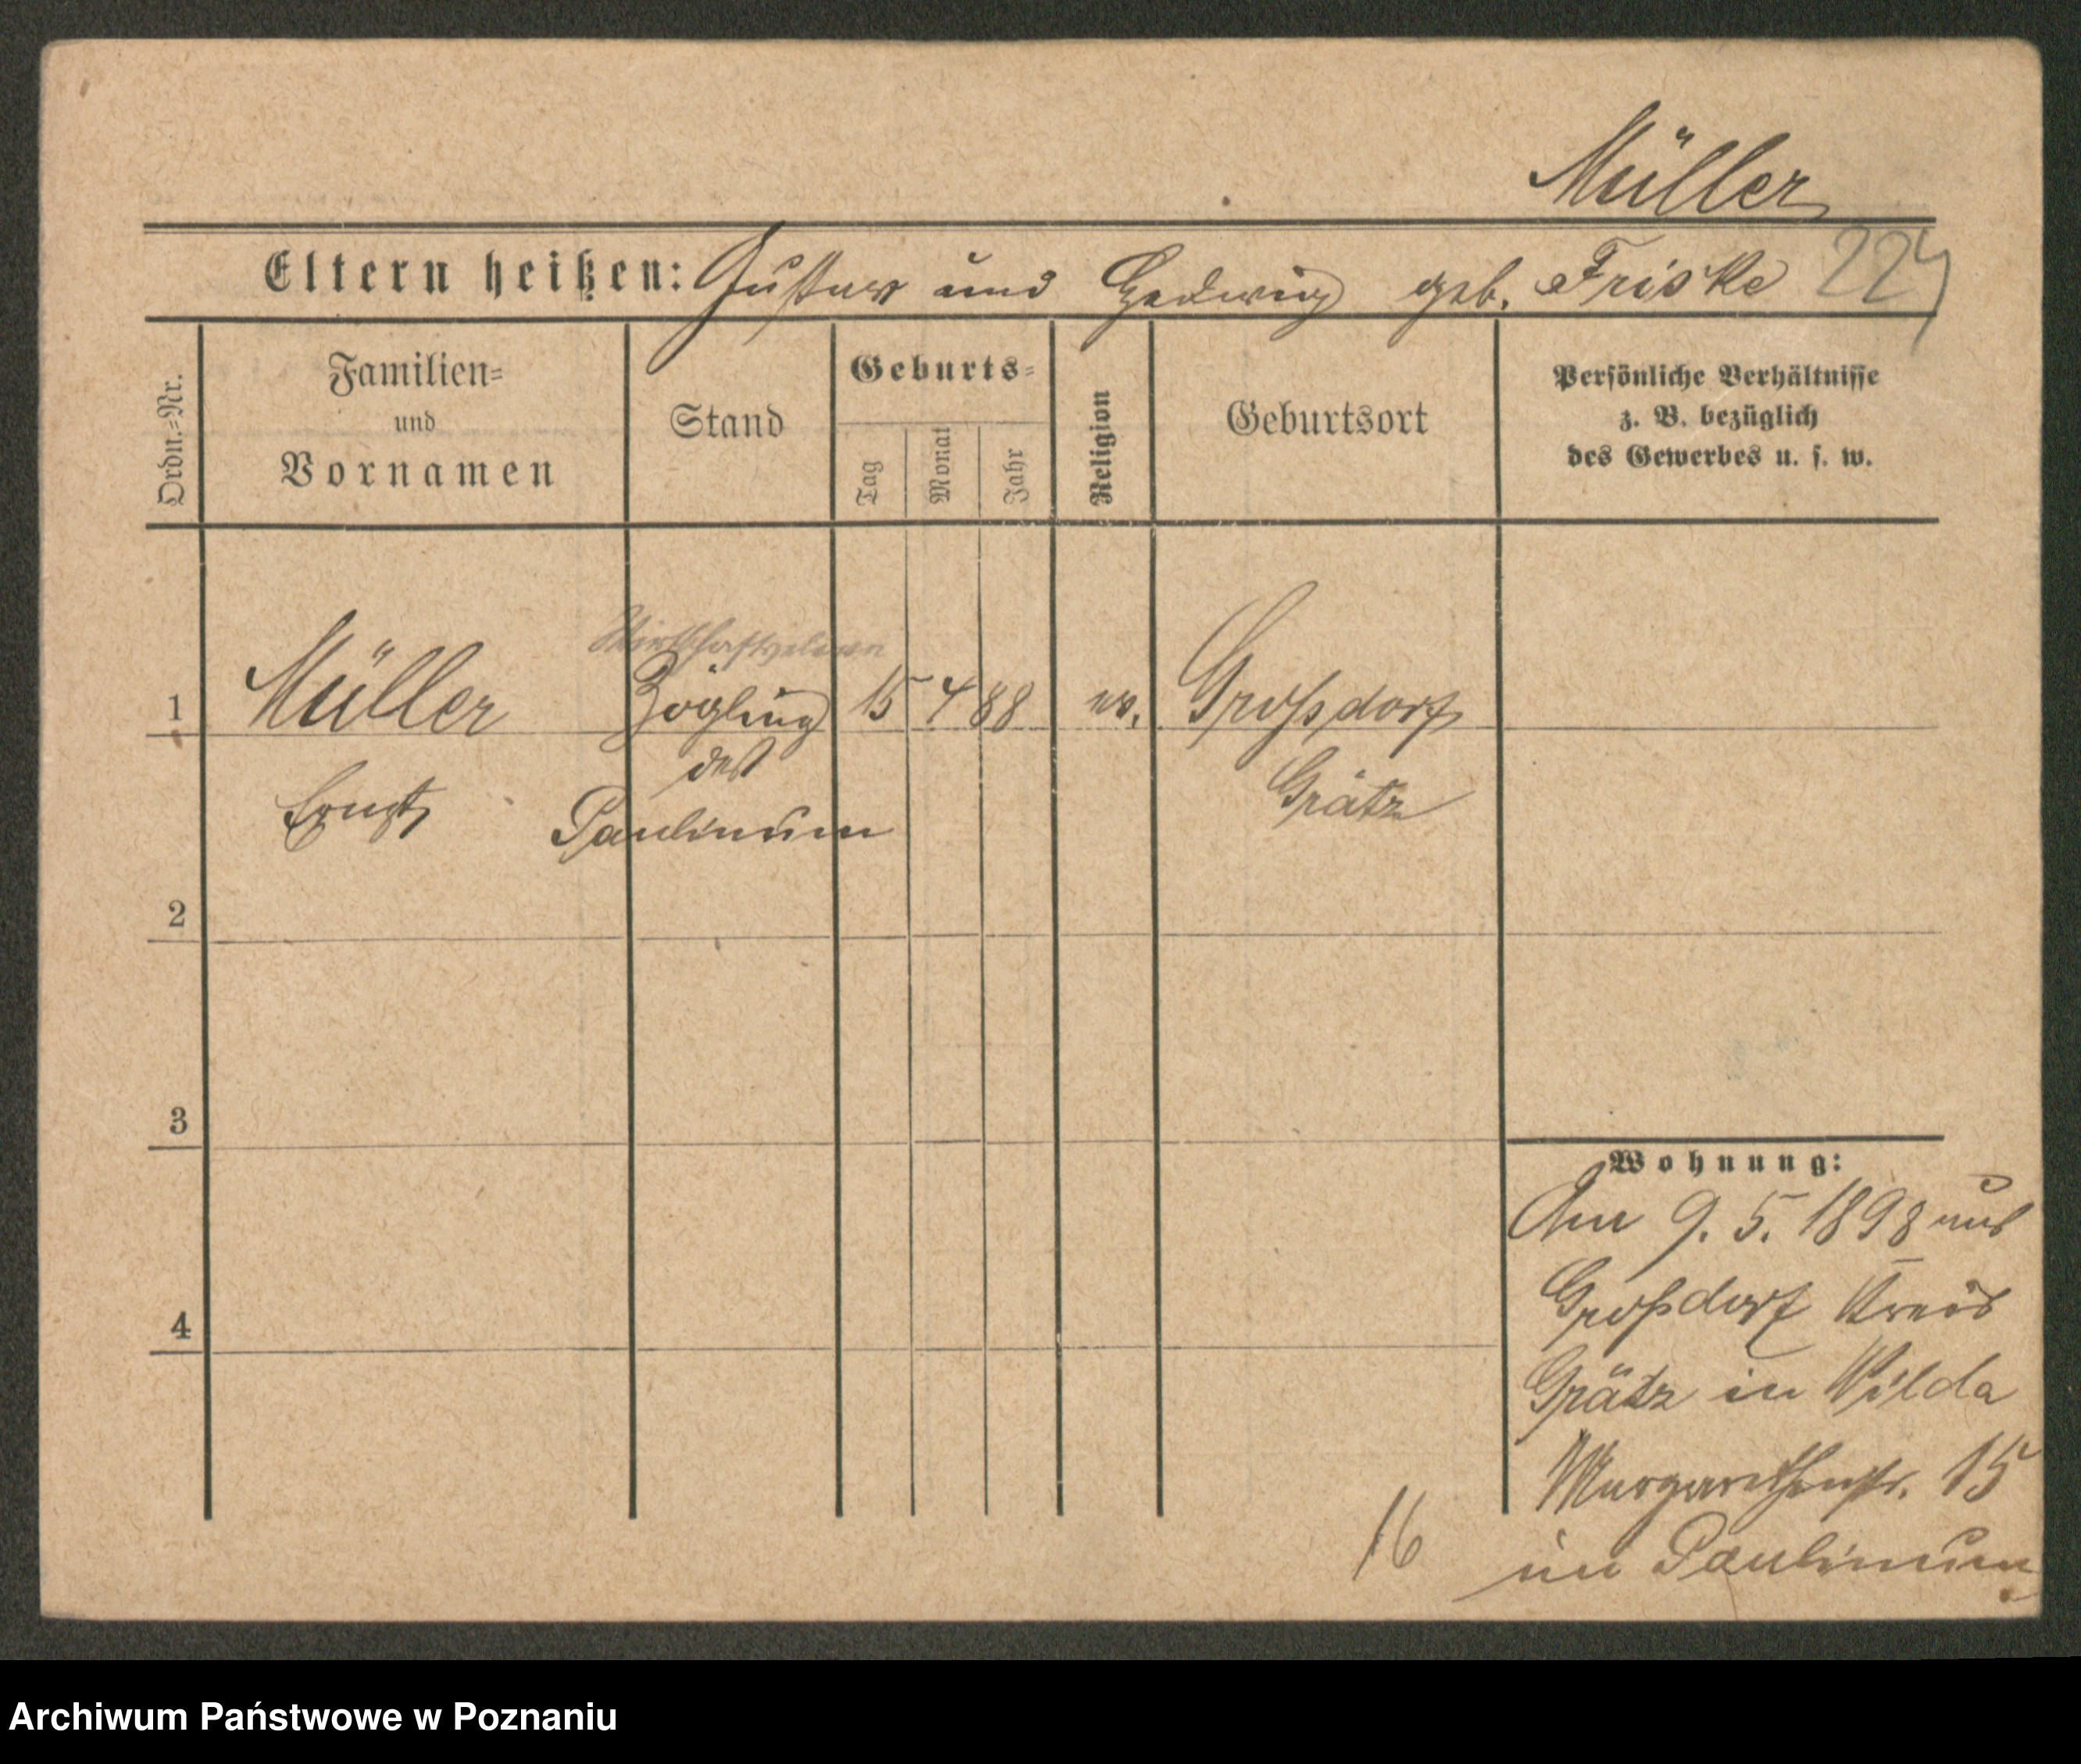 Müller
Eltern heißen: Gustav und Hedwig geb. Friske 224
Ordn.-Nr.
Familien-
und
Vornamen
Stand
Geburts-
Tag
Monat
Jahr
Religion
Geburtsort
Persönliche Verhältnisse
z. B. bezüglich
des Gewerbes u. s. w.
1 Müller Zögling 15 4 88 ev. Großdorf
des Grätz
Ernst Paulinum
2
3
4
Wohnung:
Am 9. 5. 1898 aus
Großdorf Kreis
Grätz in Wilda
Margarethenstr. 15
16 im Paulinum
Archiwum Państwowe w Poznaniu